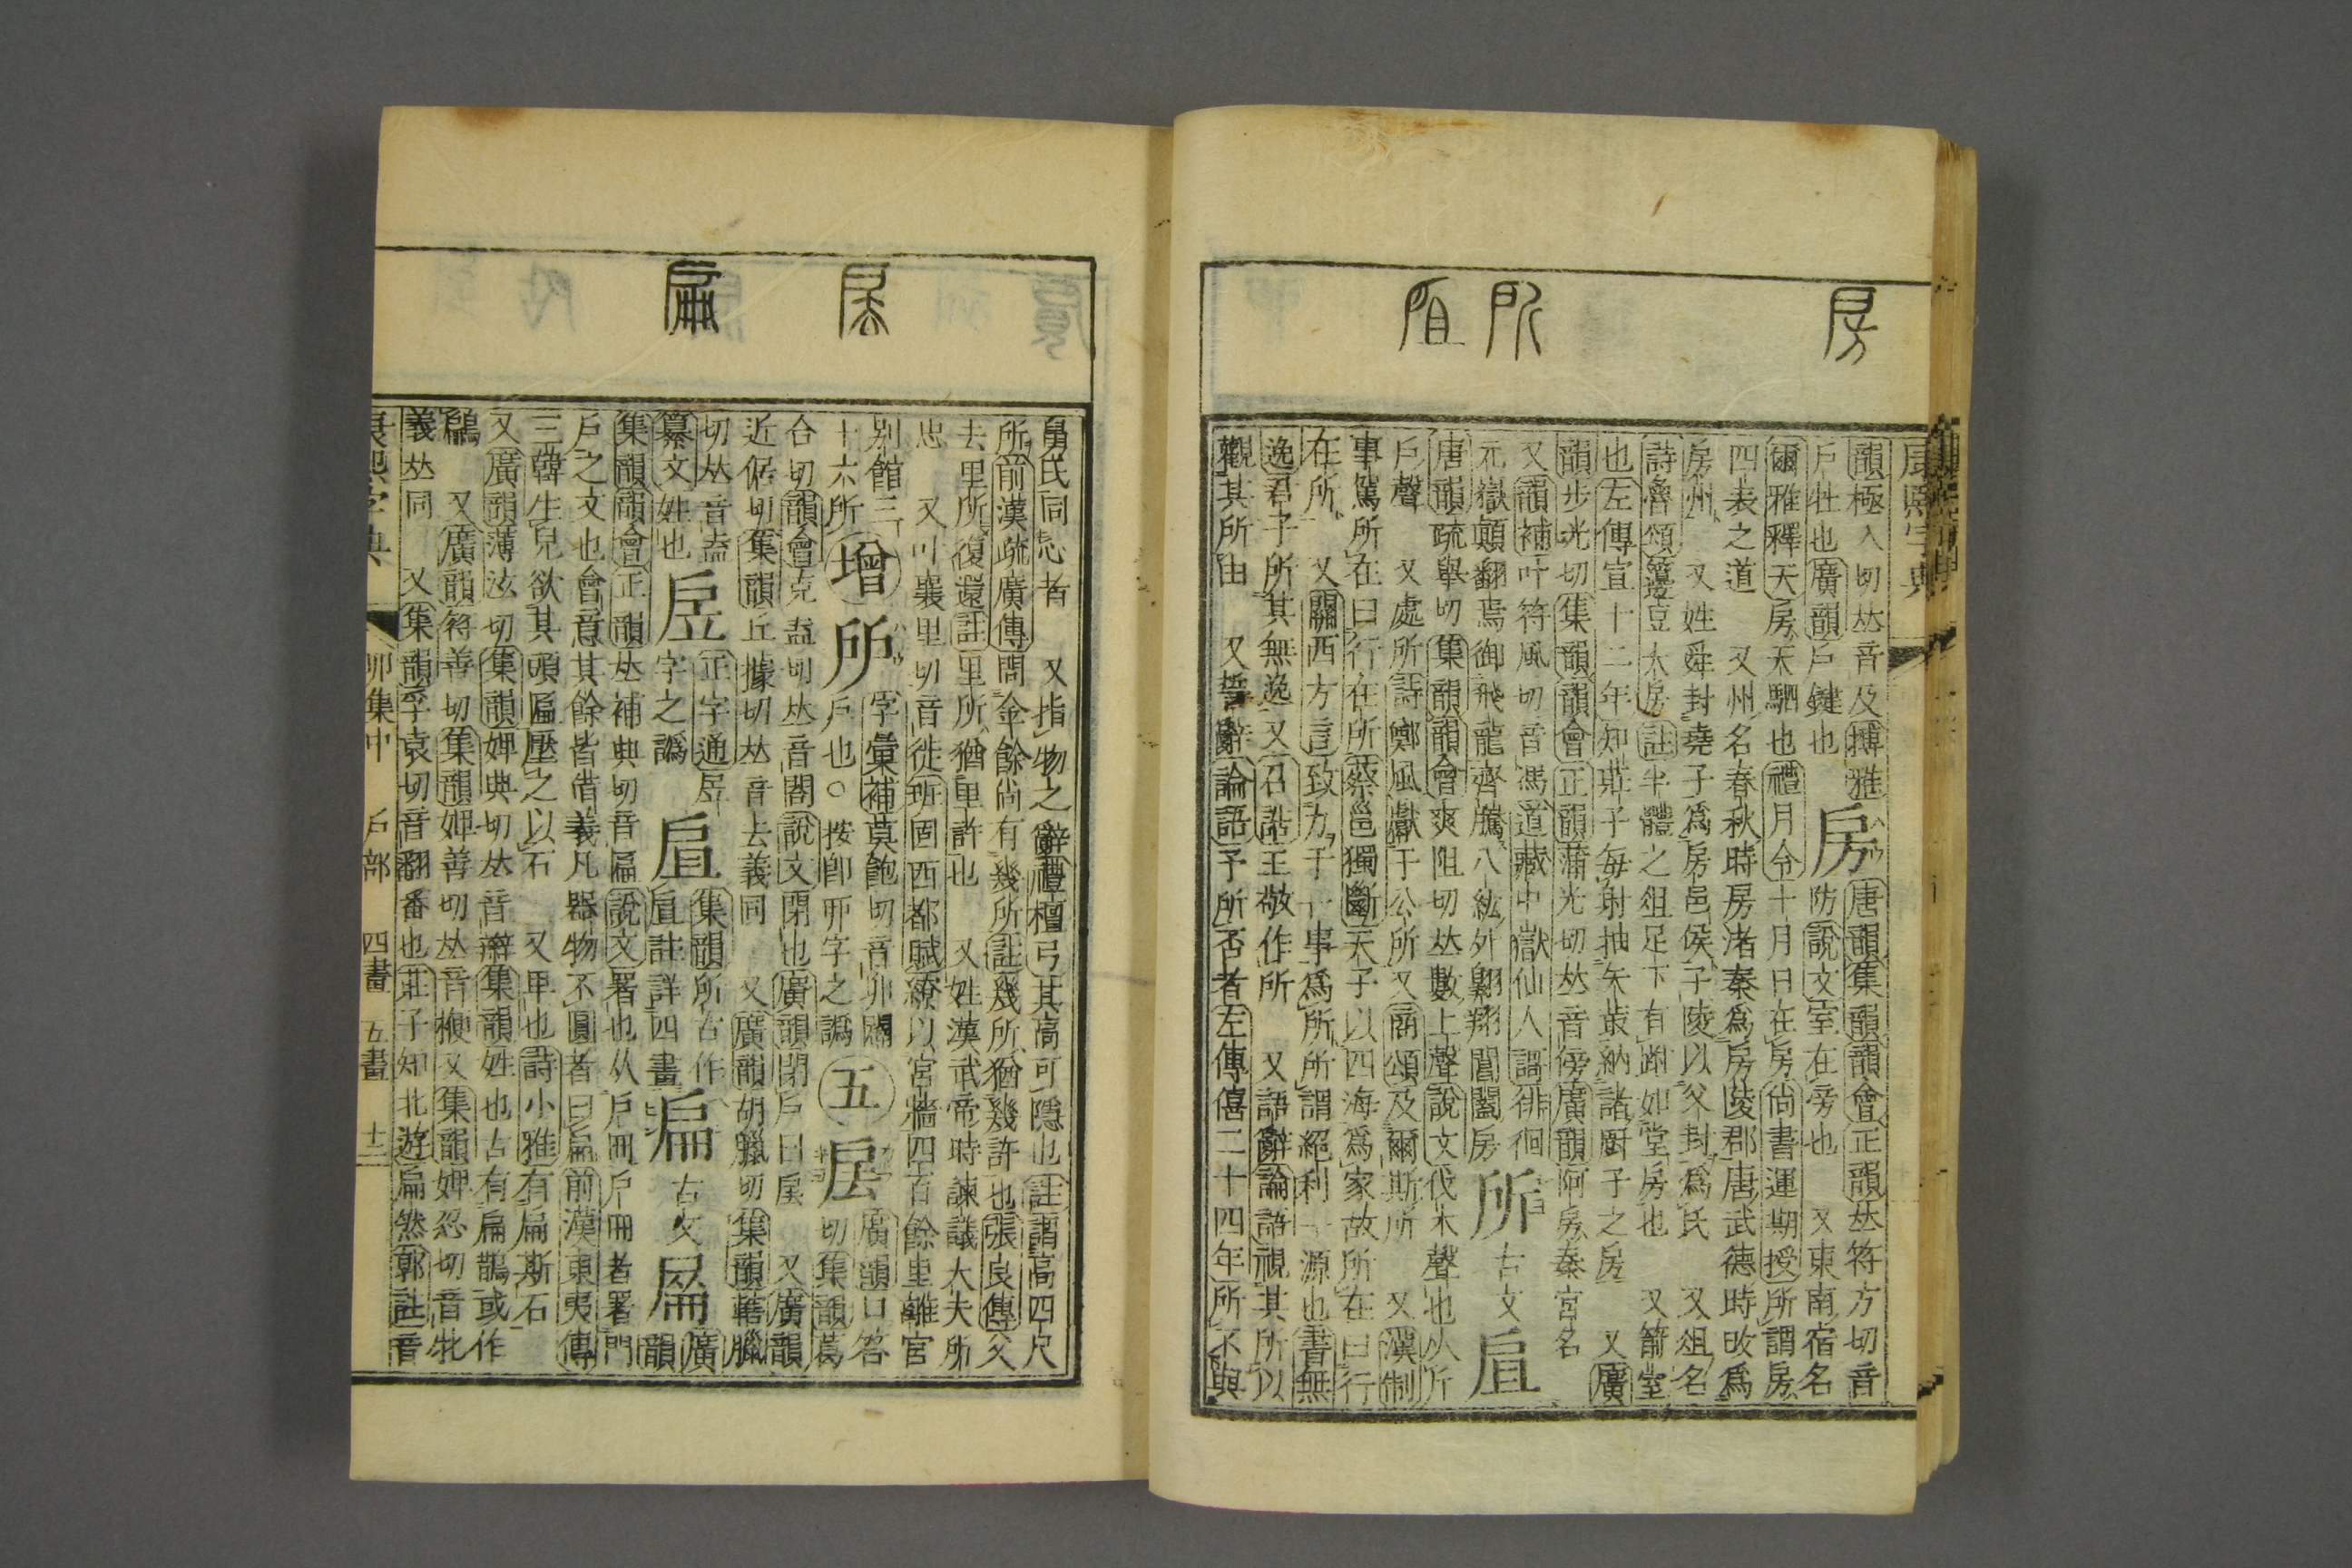 房
所
韻極入切𠀤音及博雅房唐韻集韻韻會正韻𠀤符方切音
戶牡也廣韻戶鍵也防說文室在旁也 又東南宿名
爾雅釋天房天駟也禮月令十月日在房尙書運期授所謂房
四表之道 又州名春秋時房渚秦爲房陵郡唐武德時改爲
房州 又姓舜封堯子爲房邑侯子陵以父封爲氏 又俎名
詩魯頌籩豆大房註半體之俎足下有跗如堂房也 又箭室
也左傳宣十二年知莊子每射抽矢菆納諸厨子之房 又廣
韻步光切集韻韻會正韻蒲光切𠀤音傍廣韻阿房秦宮名
又韻補叶符風切音馮道藏中嶽仙人謌徘徊
元嶽顛翻焉御飛龍齊騰八紘外翱翔閶闔房所古文㞐
唐韻疏舉切集韻韻會爽阻切𠀤數上聲說文伐木聲也从斤
戶聲 又處所詩鄭風獻于公所又商頌及爾斯所 又漢制
事駕所在曰行在所蔡邕獨斷天子以四海爲家故所在曰行
在所 又關西方言致力于一事爲所所謂絕利一源也書無
逸君子所其無逸又召誥王敬作所 又語辭論語視其所以
觀其所由 又誓辭論語予所否者左傳僖二十四年所不與
舅氏同心者 又指物之辭禮檀弓其高可隱也註謂高四尺
所前漢疏廣傳問金餘尙有幾所註幾所猶幾許也張良傳父
去里所復還註里所猶里許也 又姓漢武帝時諫議大夫所
忠 又叶襄里切音徙班固西都賦繚以宮牆四百餘里離宮
別館三
十六所增
字彙補莫飽切音卯闢
戶也○按卽丣字之譌五
㕎廣韻口答
切集韻葛
合切韻會克盍切𠀤音閤說文閉也廣韻閉戶曰㕎 又廣韻
近倨切集韻丘據切𠀤音去義同 又廣韻胡臘切集韻轄臘
切𠀤音盍
纂文姓也
正字通㕎
字之譌
集韻所古作
註詳四畫
扁古文
廣韻
集韻韻會正韻𠀤補典切音匾說文署也从戶冊戶冊者署門
戶之文也會意其餘皆借義凡器物不圓者曰扁前漢東夷傳
三韓生兒欲其頭匾壓之以石 又卑也詩小雅有扁斯石
又廣韻薄泫切集韻婢典切𠀤音辮集韻姓也古有扁鵲或作
鶣 又廣韻符善切集韻婢善切𠀤音楩又集韻婢忍切音牝
義𠀤同 又集韻孚袁切音翻番也莊子知北遊扁然郭註音
康熙字典 卯集中 戶部 四畫 五畫 十二